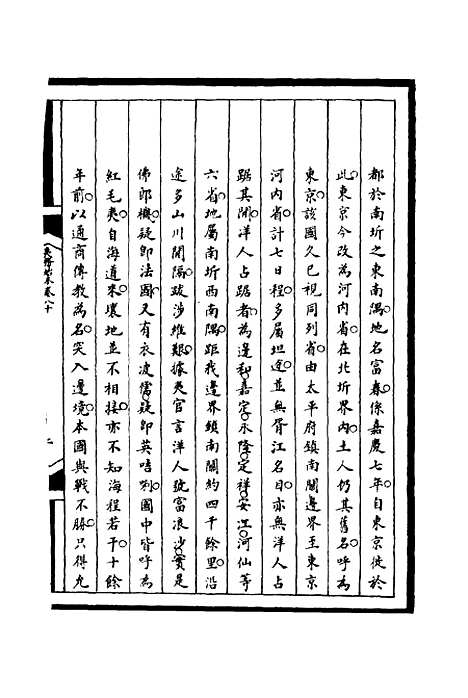 都於南圻之東南隅地名富春係嘉慶七年自東京徙於
此東京今改為河内省在北圻界内土人仍其舊名呼為
東京該國久已視同列省由太平府鎮南關邊界至東京
河内省計七日程多屬坦途並無胥江名目亦無洋人占
踞其間洋人占踞者為邊和嘉定永隆定祥安江河仙等
六省地屬南圻西南隅距我邊界鎮南關約四千餘里沿
途多山川間隔跋涉維艱據夷官言洋人號富浪沙實是
佛郎機疑即法國又有衣波儒疑即英咭唎國中皆呼為
紅毛夷自海道來壤地並不相接亦不知海程若干十餘
年前以通商傳教為名突入邊境本國與戰不勝只得允